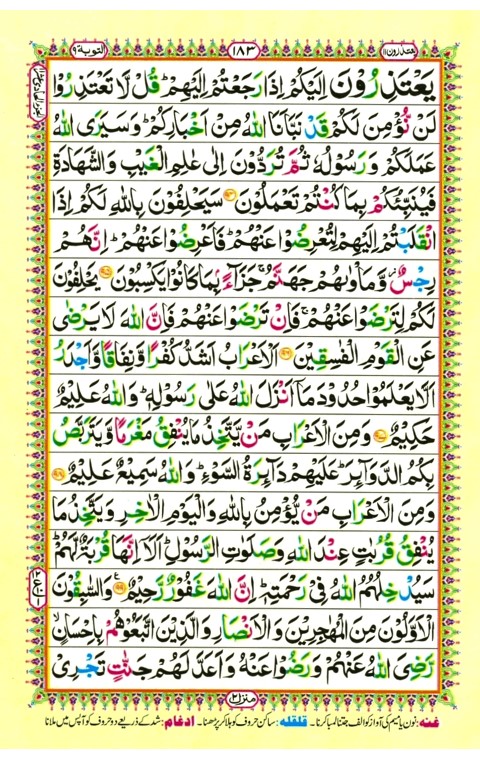 یعتذرون ۱۱
۱۸۳
التوبة ۹
يَعْتَذِرُوْنَ اِلَيْكُمْ اِذَا رَجَعْتُمْ اِلَيْهِمْ ؕ قُلْ لَّا تَعْتَذِرُوْا
لَنْ نُّؤْمِنَ لَكُمْ قَدْ نَبَّاَنَا اللّٰهُ مِنْ اَخْبَارِكُمْ ؕ وَسَيَرَى اللّٰهُ
عَمَلَكُمْ وَرَسُوْلُهٗ ثُمَّ تُرَدُّوْنَ اِلٰى عٰلِمِ الْغَيْبِ وَالشَّهَادَةِ
فَيُنَبِّئُكُمْ بِمَا كُنْتُمْ تَعْمَلُوْنَ ۝ سَيَحْلِفُوْنَ بِاللّٰهِ لَكُمْ اِذَا
انْقَلَبْتُمْ اِلَيْهِمْ لِتُعْرِضُوْا عَنْهُمْ ؕ فَاَعْرِضُوْا عَنْهُمْ ؕ اِنَّهُمْ
رِجْسٌ ؗ وَّمَاْوٰىهُمْ جَهَنَّمُ ۚ جَزَآءًۢ بِمَا كَانُوْا يَكْسِبُوْنَ ۝ يَحْلِفُوْنَ
لَكُمْ لِتَرْضَوْا عَنْهُمْ ۚ فَاِنْ تَرْضَوْا عَنْهُمْ فَاِنَّ اللّٰهَ لَا يَرْضٰى
عَنِ الْقَوْمِ الْفٰسِقِيْنَ ۝ اَلْاَعْرَابُ اَشَدُّ كُفْرًا وَّنِفَاقًا وَّاَجْدَرُ
اَلَّا يَعْلَمُوْا حُدُوْدَ مَآ اَنْزَلَ اللّٰهُ عَلٰى رَسُوْلِهٖ ؕ وَاللّٰهُ عَلِيْمٌ
حَكِيْمٌ ۝ وَمِنَ الْاَعْرَابِ مَنْ يَّتَّخِذُ مَا يُنْفِقُ مَغْرَمًا وَّيَتَرَبَّصُ
بِكُمُ الدَّوَآئِرَ ؕ عَلَيْهِمْ دَآئِرَةُ السَّوْءِ ؕ وَاللّٰهُ سَمِيْعٌ عَلِيْمٌ ۝
وَمِنَ الْاَعْرَابِ مَنْ يُّؤْمِنُ بِاللّٰهِ وَالْيَوْمِ الْاٰخِرِ وَيَتَّخِذُ مَا
يُنْفِقُ قُرُبٰتٍ عِنْدَ اللّٰهِ وَصَلَوٰتِ الرَّسُوْلِ ؕ اَلَآ اِنَّهَا قُرْبَةٌ لَّهُمْ ؕ
سَيُدْخِلُهُمُ اللّٰهُ فِيْ رَحْمَتِهٖ ؕ اِنَّ اللّٰهَ غَفُوْرٌ رَّحِيْمٌ ۝ وَالسّٰبِقُوْنَ
الْاَوَّلُوْنَ مِنَ الْمُهٰجِرِيْنَ وَالْاَنْصَارِ وَالَّذِيْنَ اتَّبَعُوْهُمْ بِاِحْسَانٍ ۙ
رَّضِيَ اللّٰهُ عَنْهُمْ وَرَضُوْا عَنْهُ وَاَعَدَّ لَهُمْ جَنّٰتٍ تَجْرِيْ
منزل ۲
غنه: نون یا میم کی آواز کو الف جتنا لمبا کرنا۔ قلقله: ساکن حروف کو ہلا کر پڑھنا۔ ادغام: شد کے ذریعے دو حروف کو آپس میں ملانا